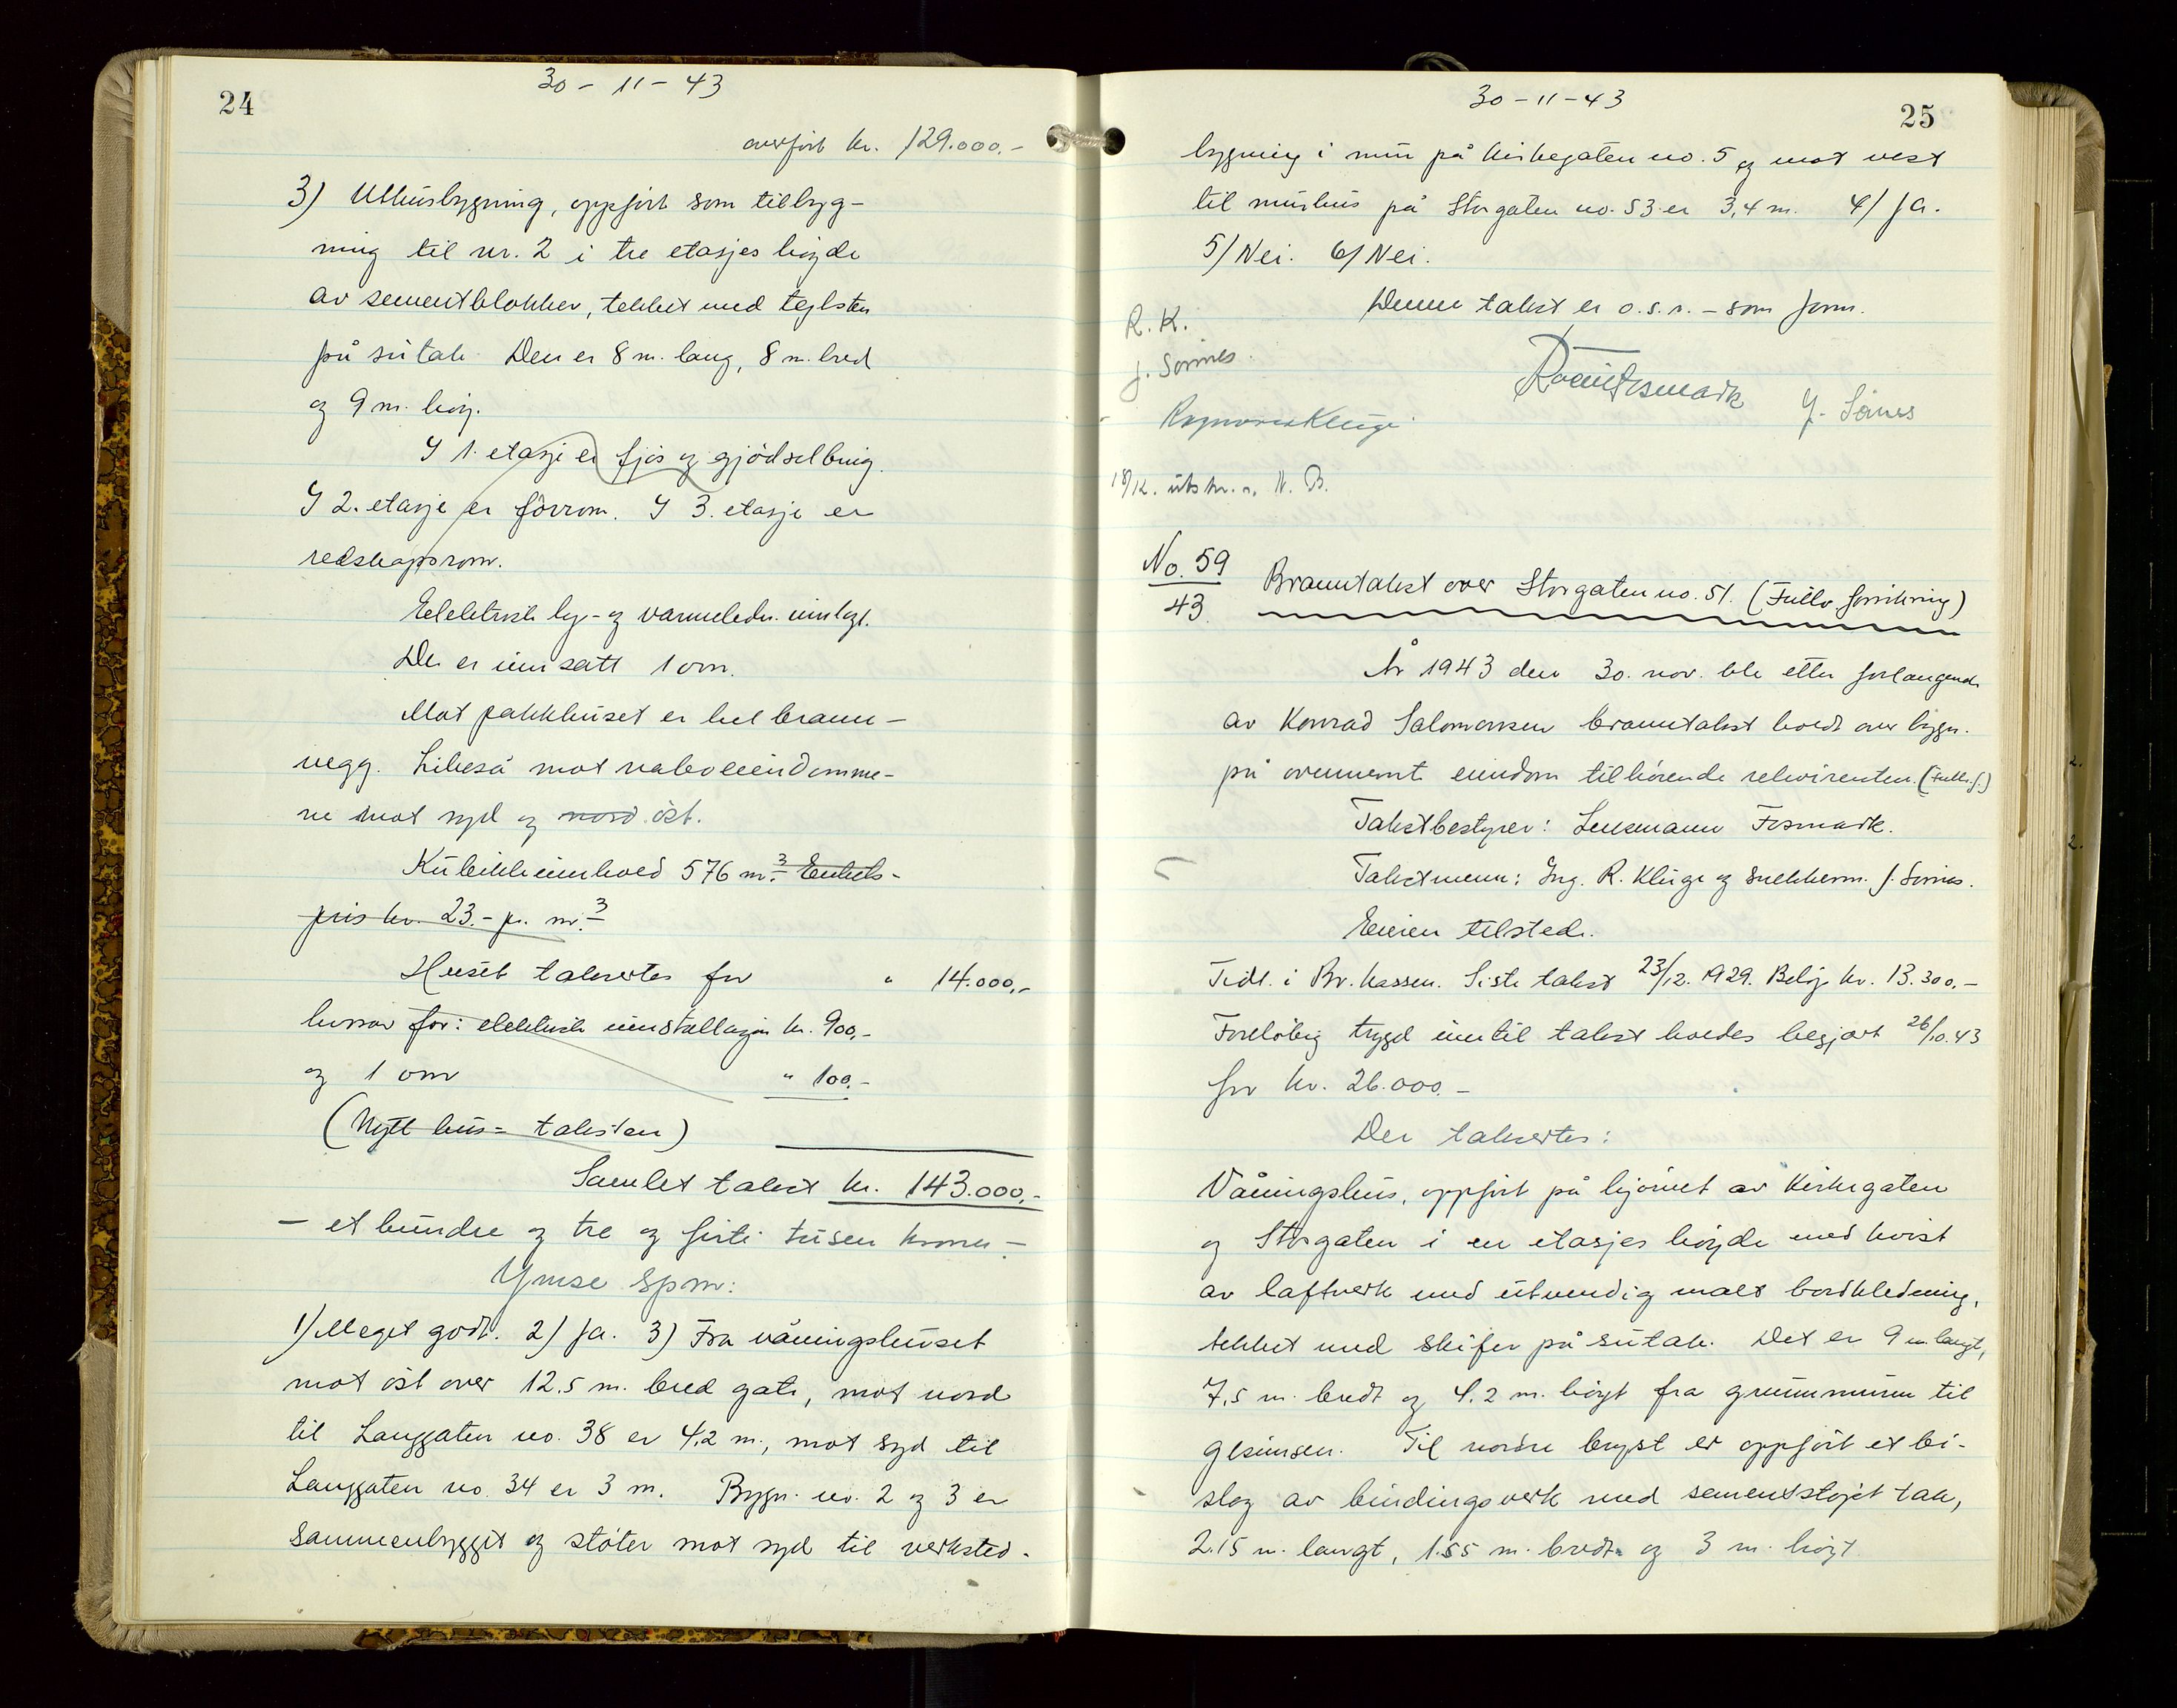 24
30 - 11 - 43
overført kr. 129.000.-
3) Uthusbygning, oppført som tilbyg-
ning til nr. 2 i tre etasjes höyde
av sementblokker, tekket med teglsten
på sutak. Den er 8 m. lang, 8 m. bred
og 9 m. höy.
I 1. etasje er fjös og gjödselbing.
I 2. etasje er fôrrom. I 3. etasje er
redskapsrom.
Eelektrisk lys- og varmeledn. innlagt.
Der er innsatt 1 ovn.
Mot pakkhuset er hel brann-
vegg. Likeså mot naboeiendomme-
ne mot syd og nord öst.
Kubikkinnhold 576 m.3 Enhets-
pris kr. 23.- pr. m.3
Huset takseres for " 14.000.-
hvorav for: elektrisk innstallasjon kr. 900.-
og 1 ovn " 100.-
(Nytt hus = taksten)
Samlet takst kr. 143.000.-
- et hundre og tre og firti tusen kroner -
Ymse spm:
1) Meget godt. 2) Ja. 3) Fra våningshuset
mot öst over 12.5 m. bred gate, mot nord
til Langgaten no. 38 er 4,2 m., mot syd til
Langgaten no. 34 er 3 m. Bygn. no. 2 og 3 er
sammenbygget og stöter mot syd til verksted-
30 - 11 - 43
25
bygning i mur på Kirkegaten no. 5 og mot vest
til murhus på Storgaten no. 53 er 3,4 m. 4/ Ja.
5/ Nei. 6/ Nei.
Denne takst er o.s.v. - som form.
R. K.
J. Sörnes.
Fosmark J. Sörnes
Ragnvald Kluge
18/12. utskr. s. N. B.
No. 59
43
Branntakst over Storgaten no. 51. (Fullv. forsikring)
År 1943 den 30. nov. ble etter forlangende
av Konrad Salomonsen branntakst holdt over bygn.
på ovennevnte eiendom tilhörende rekvirenten. (Fullv. f.)
Takstbestyrer: Lensmann Fosmark.
Takstmenn: Ing. R. Kluge og snekkerm. J. Sörnes.
Eieren tilstede.
Tidl. i Br. kassen. Siste takst 23/12. 1929. Belöp kr. 13.300.-
Forelöbig trygd inntil takst holdes begjært 26/10.43
for kr. 26.000.-
Der takseres:
Våningshus, oppfört på hjörnet av Kirkegaten
og Storgaten i en etasjes höyde med kvist
av laftverk med utvendig malt bordkledning,
tekket med skifer på sutak. Det er 9 m. langt,
7,5 m. bredt og 4.2 m. höyt fra grunnmuren til
gesimsen. Til nordre bryst er oppfört et bi-
slag av bindingsverk med sementstöpt tak,
2.15 m. langt, 1.55 m. bredt og 3 m. höyt.